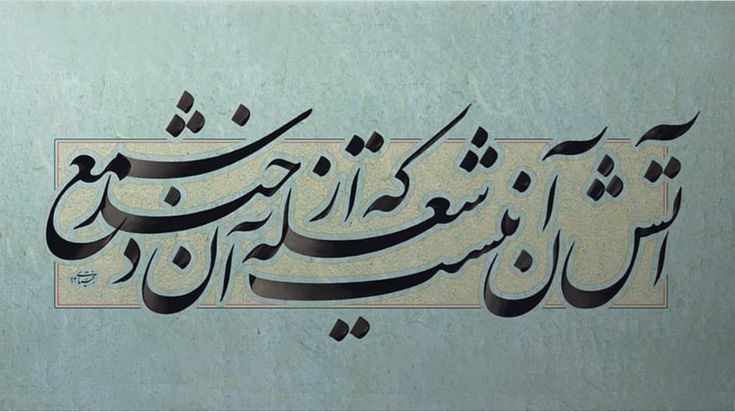 آتش آن نیست که از شعله آن خندد شمع